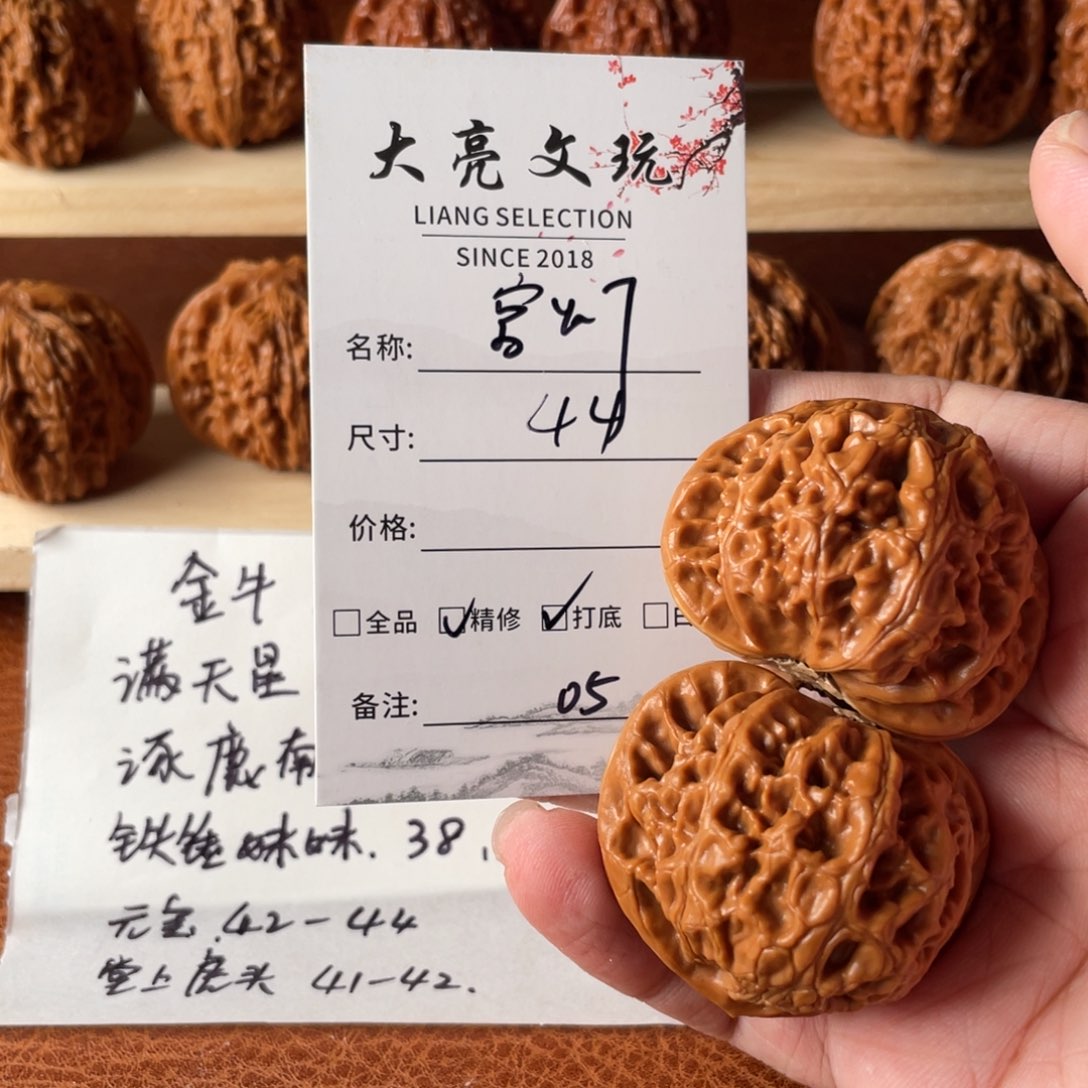 大亮文玩
LIANG SELECTION
SINCE 2018
名称:
尺寸: 44
价格:
全品 精修 打底
备注: 05
金牛
满天星
涿鹿南
铁锤妹妹. 38.
元宝.42-44
堂上虎头 41-42.